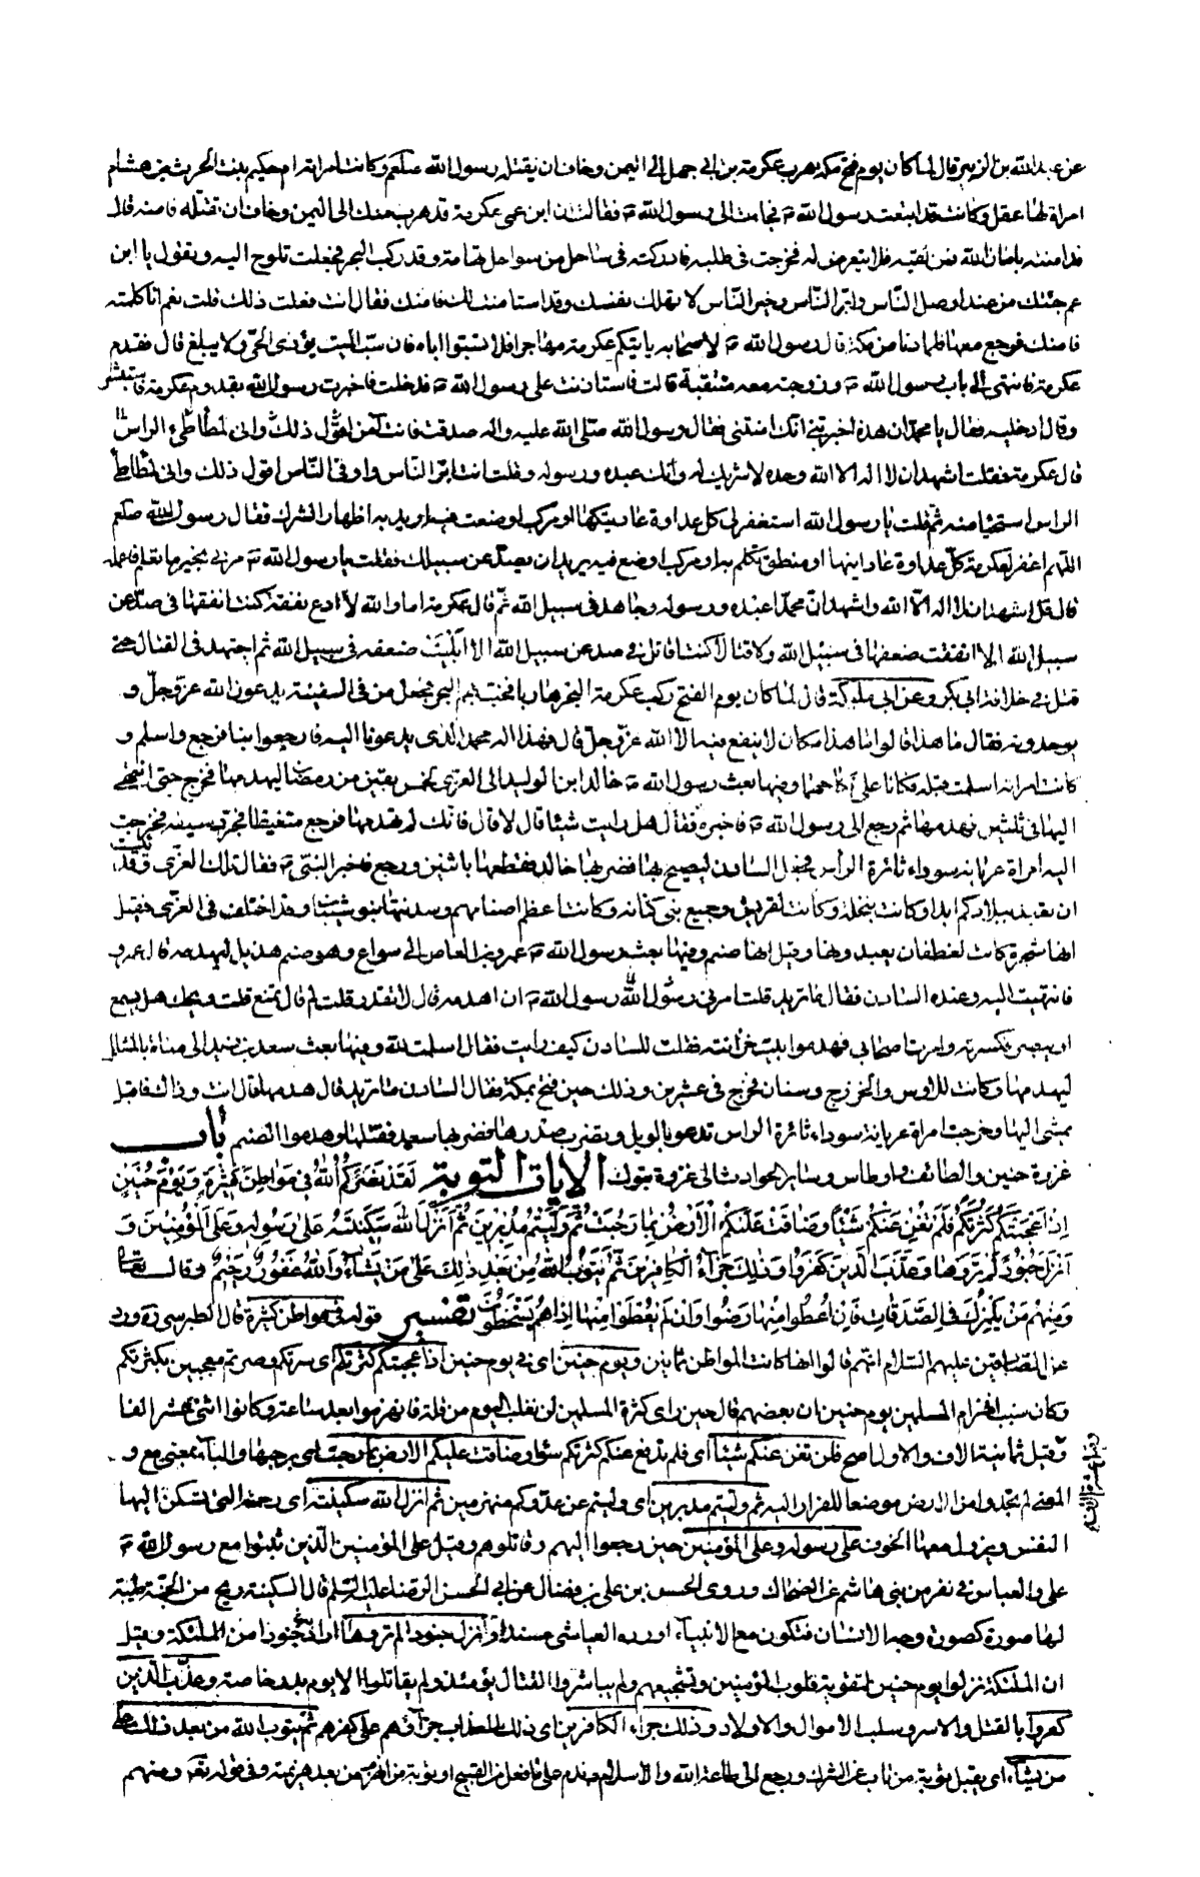 عن عبد الله بن الزبير قال لما كان يوم فتح مكة هرب عكرمة بن ابي جهل الى اليمن وخاف ان يقتله رسول الله صلعم وكانت امراته ام حكيم بنت الحرث بن هشام
امراة لها عقل وكانت قد اتبعت رسول الله ص فجاءت الى رسول الله ص فقالت ان ابن عمي عكرمة قد هرب منك الى اليمن وخاف ان تقتله فامنه قال
قد امنته بامان الله فمن لقيه فلا يتعرض له فخرجت في طلبه فادركته في ساحل من سواحل تهامة وقد ركب البحر فجعلت تلوح اليه وتقول يا ابن
عم جئتك من عند اوصل الناس وابر الناس وخير الناس لا تهلك نفسك وقد استامنت لك فامنك فقال انت فعلت ذلك قلت نعم انا كلمته
فامنك فرجع معها فلما دنا من مكة قال رسول الله ص لاصحابه ياتيكم عكرمة مهاجرا فلا تسبوا اباه فان سب الميت يؤذي الحي ولا يبلغ قال فقدم
عكرمة فانتهى الى باب رسول الله ص وزوجته معه متنقبة قالت فاستاذنت على رسول الله ص فدخلت فاخبرت رسول الله بقدوم عكرمة فاستبشر
وقال ادخليه فقال يا محمد ان هذه اخبرتني انك امنتني فقال رسول الله صلى الله عليه واله صدقت فانت آمن
قال عكرمة فقلت اشهد ان لا اله الا الله وحده لا شريك له وانك عبده ورسوله وقلت انت ابر الناس واوفى الناس اقول ذلك واني لمطاطئ
الراس استحياء منه ثم قلت يا رسول الله استغفر لي كل عداوة عاديتكها او مركب اوضعت فيه اريد به اظهار الشرك فقال رسول الله صلعم
اللهم اغفر لعكرمة كل عداوة عادانيها او منطق تكلم به او مركب اوضع فيه يريد ان يصد عن سبيلك فقلت يا رسول الله ص مرني بخير ما تعلم فاعمله
قال قل اشهد ان لا اله الا الله واشهد ان محمدا عبده ورسوله وجاهد في سبيل الله ثم قال عكرمة اما والله لا ادع نفقة كنت انفقها في صد عن
سبيل الله الا انفقت ضعفها في سبيل الله ولا قتالا كنت اقاتل في صد عن سبيل الله الا ابليت ضعفه في سبيل الله ثم اجتهد في القتال حتى
قتل في خلافة ابي بكر وعن ابي مليكة قال لما كان يوم الفتح ركب عكرمة البحر هاربا فخب بهم البحر فجعل من في السفينة يدعون الله عز وجل و
يوحدونه فقال ما هذا قالوا هذا مكان لا ينفع فيه الا الله عز وجل قال فهذا اله محمد الذي يدعونا اليه فارجعوا بنا فرجع واسلم و
كانت امراته اسلمت قبله فكانا على نكاحهما ومنها بعث رسول الله ص خالد ابن الوليد الى العزى لخمس بقين من رمضان ليهدمها فخرج حتى انتهى
اليها في ثلثين فهدمها ثم رجع الى رسول الله ص فاخبره فقال هل رايت شيئا قال لا قال فانك لم تهدمها فرجع متغيظا فجرد سيفه فخرجت
اليه امراة عريانة سوداء ثائرة الراس فجعل السادن يصيح بها فضربها خالد فقطعها باثنين ورجع فاخبر النبي ص فقال تلك العزى وقد يئست
ان تعبد ببلادكم ابدا وكانت بنخلة وكانت لقريش وجميع بني كنانة وكانت اعظم اصنامهم وسدنتها بنو شيبان وقد اختلف في العزى فقيل
انها شجرة كانت لغطفان يعبدونها وقيل انها صنم ومنها بعث رسول الله ص عمرو بن العاص الى سواع وهو صنم هذيل ليهدمه قال عمرو
فانتهيت اليه وعنده السادن فقال ما تريد قلت امرني رسول الله ص ان اهدمه قال لا تقدر قلت لم قال تمنع قلت ويحك هل يسمع
او يبصر فكسرته وامرت اصحابي فهدموا بيت خزانته فقلت للسادن كيف رايت فقال اسلمت لله ومنها بعث سعد بن زيد الى مناة بالمشلل
ليهدمها وكانت للاوس والخزرج وغسان فخرج في عشرين وذلك حين فتح مكة فقال السادن ما تريد قال هدمها قال انت وذاك فاقبل
يمشي اليها وخرجت امراة عريانة سوداء ثائرة الراس تدعو بالويل وتضرب صدرها فضربها سعد فقتلها وهدموا الصنم باب
غزوة حنين والطائف واوطاس وساير الحوادث الى غزوة تبوك الايات التوبة لَقَدْ نَصَرَكُمُ اللهُ فِي مَوَاطِنَ كَثِيرَةٍ وَيَوْمَ حُنَيْنٍ
اِذْ اَعْجَبَتْكُمْ كَثْرَتُكُمْ فَلَمْ تُغْنِ عَنْكُمْ شَيْئًا وَضَاقَتْ عَلَيْكُمُ الْاَرْضُ بِمَا رَحُبَتْ ثُمَّ وَلَّيْتُمْ مُدْبِرِينَ ثُمَّ اَنْزَلَ اللهُ سَكِينَتَهُ عَلَى رَسُولِهِ وَعَلَى الْمُؤْمِنِينَ وَ
اَنْزَلَ جُنُودًا لَمْ تَرَوْهَا وَعَذَّبَ الَّذِينَ كَفَرُوا وَذَلِكَ جَزَاءُ الْكَافِرِينَ ثُمَّ يَتُوبُ اللهُ مِنْ بَعْدِ ذَلِكَ عَلَى مَنْ يَشَاءُ وَاللهُ غَفُورٌ رَحِيمٌ وقال تعالى
وَمِنْهُمْ مَنْ يَلْمِزُكَ فِي الصَّدَقَاتِ فَاِنْ اُعْطُوا مِنْهَا رَضُوا وَاِنْ لَمْ يُعْطَوْا مِنْهَا اِذَا هُمْ يَسْخَطُونَ تفسير قوله في مواطن كثيرة قال الطبرسي ره ورد
عن الصادقين عليهم السلام انهم قالوا انها كانت المواطن ثمانين ويوم حنين اي في يوم حنين اذ اعجبتكم كثرتكم اي سرتكم وصرتم معجبين بكثرتكم
وكان سبب انهزام المسلمين يوم حنين ان بعضهم قال حين راى كثرة المسلمين لن نغلب اليوم من قلة فانهزموا بعد ساعة وكانوا اثني عشر الفا
وقيل ثمانية الاف والاول اصح فلن تغن عنكم شيئا اي فلم تدفع عنكم كثرتكم سوءا وضاقت عليكم الارض بما رحبت اي برحبها والباء بمعنى مع و
المعنى لم تجدوا من الارض موضعا للفرار اليه ثم وليتم مدبرين اي وليتم عن عدوكم منهزمين ثم انزل الله سكينته اي رحمته التي تسكن اليها
النفس ويزول معها الخوف على رسوله وعلى المؤمنين حين رجعوا اليهم وقاتلوهم وقيل على المؤمنين الذين ثبتوا مع رسول الله ص
علي والعباس في نفر من بني هاشم عن الضحاك وروى الحسن بن علي بن فضال عن ابي الحسن الرضا عليه السلم قال السكينة ريح من الجنة طيبة
لها صورة كصورة وجه الانسان فتكون مع الانبياء اورده العياشي مسندا وانزل جنودا لم تروها اراد جنودا من الملئكة وقيل
ان الملئكة نزلوا يوم حنين لتقوية قلوب المؤمنين وتشجيعهم ولم يباشروا القتال يومئذ ولم يقاتلوا الا يوم بدر خاصة وعذب الذين
كفروا بالقتل والاسر وسلب الاموال والاولاد وذلك جزاء الكافرين اي ذلك العذاب جزاؤهم على كفرهم ثم يتوب الله من بعد ذلك على
من يشاء اي يقبل توبة من تاب عن الشرك ورجع الى طاعة الله والاسلام وندم على ما فعل من القبيح او توبة من انهزم من بعد هزيمته وفي قوله تعه ومنهم